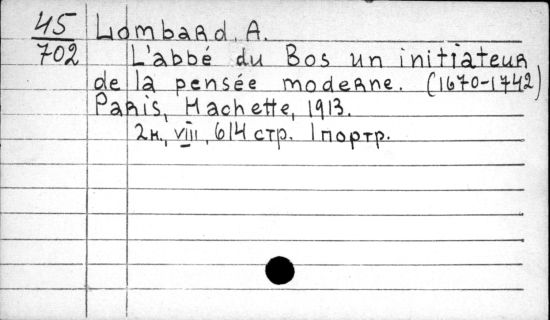 45
702
Lombard, A.
L'abbé du Bos un initiateur
de la pensée moderne. (1670-1742)
Paris, Hachette, 1913.
2н, viii, 614 стр. 1портр.